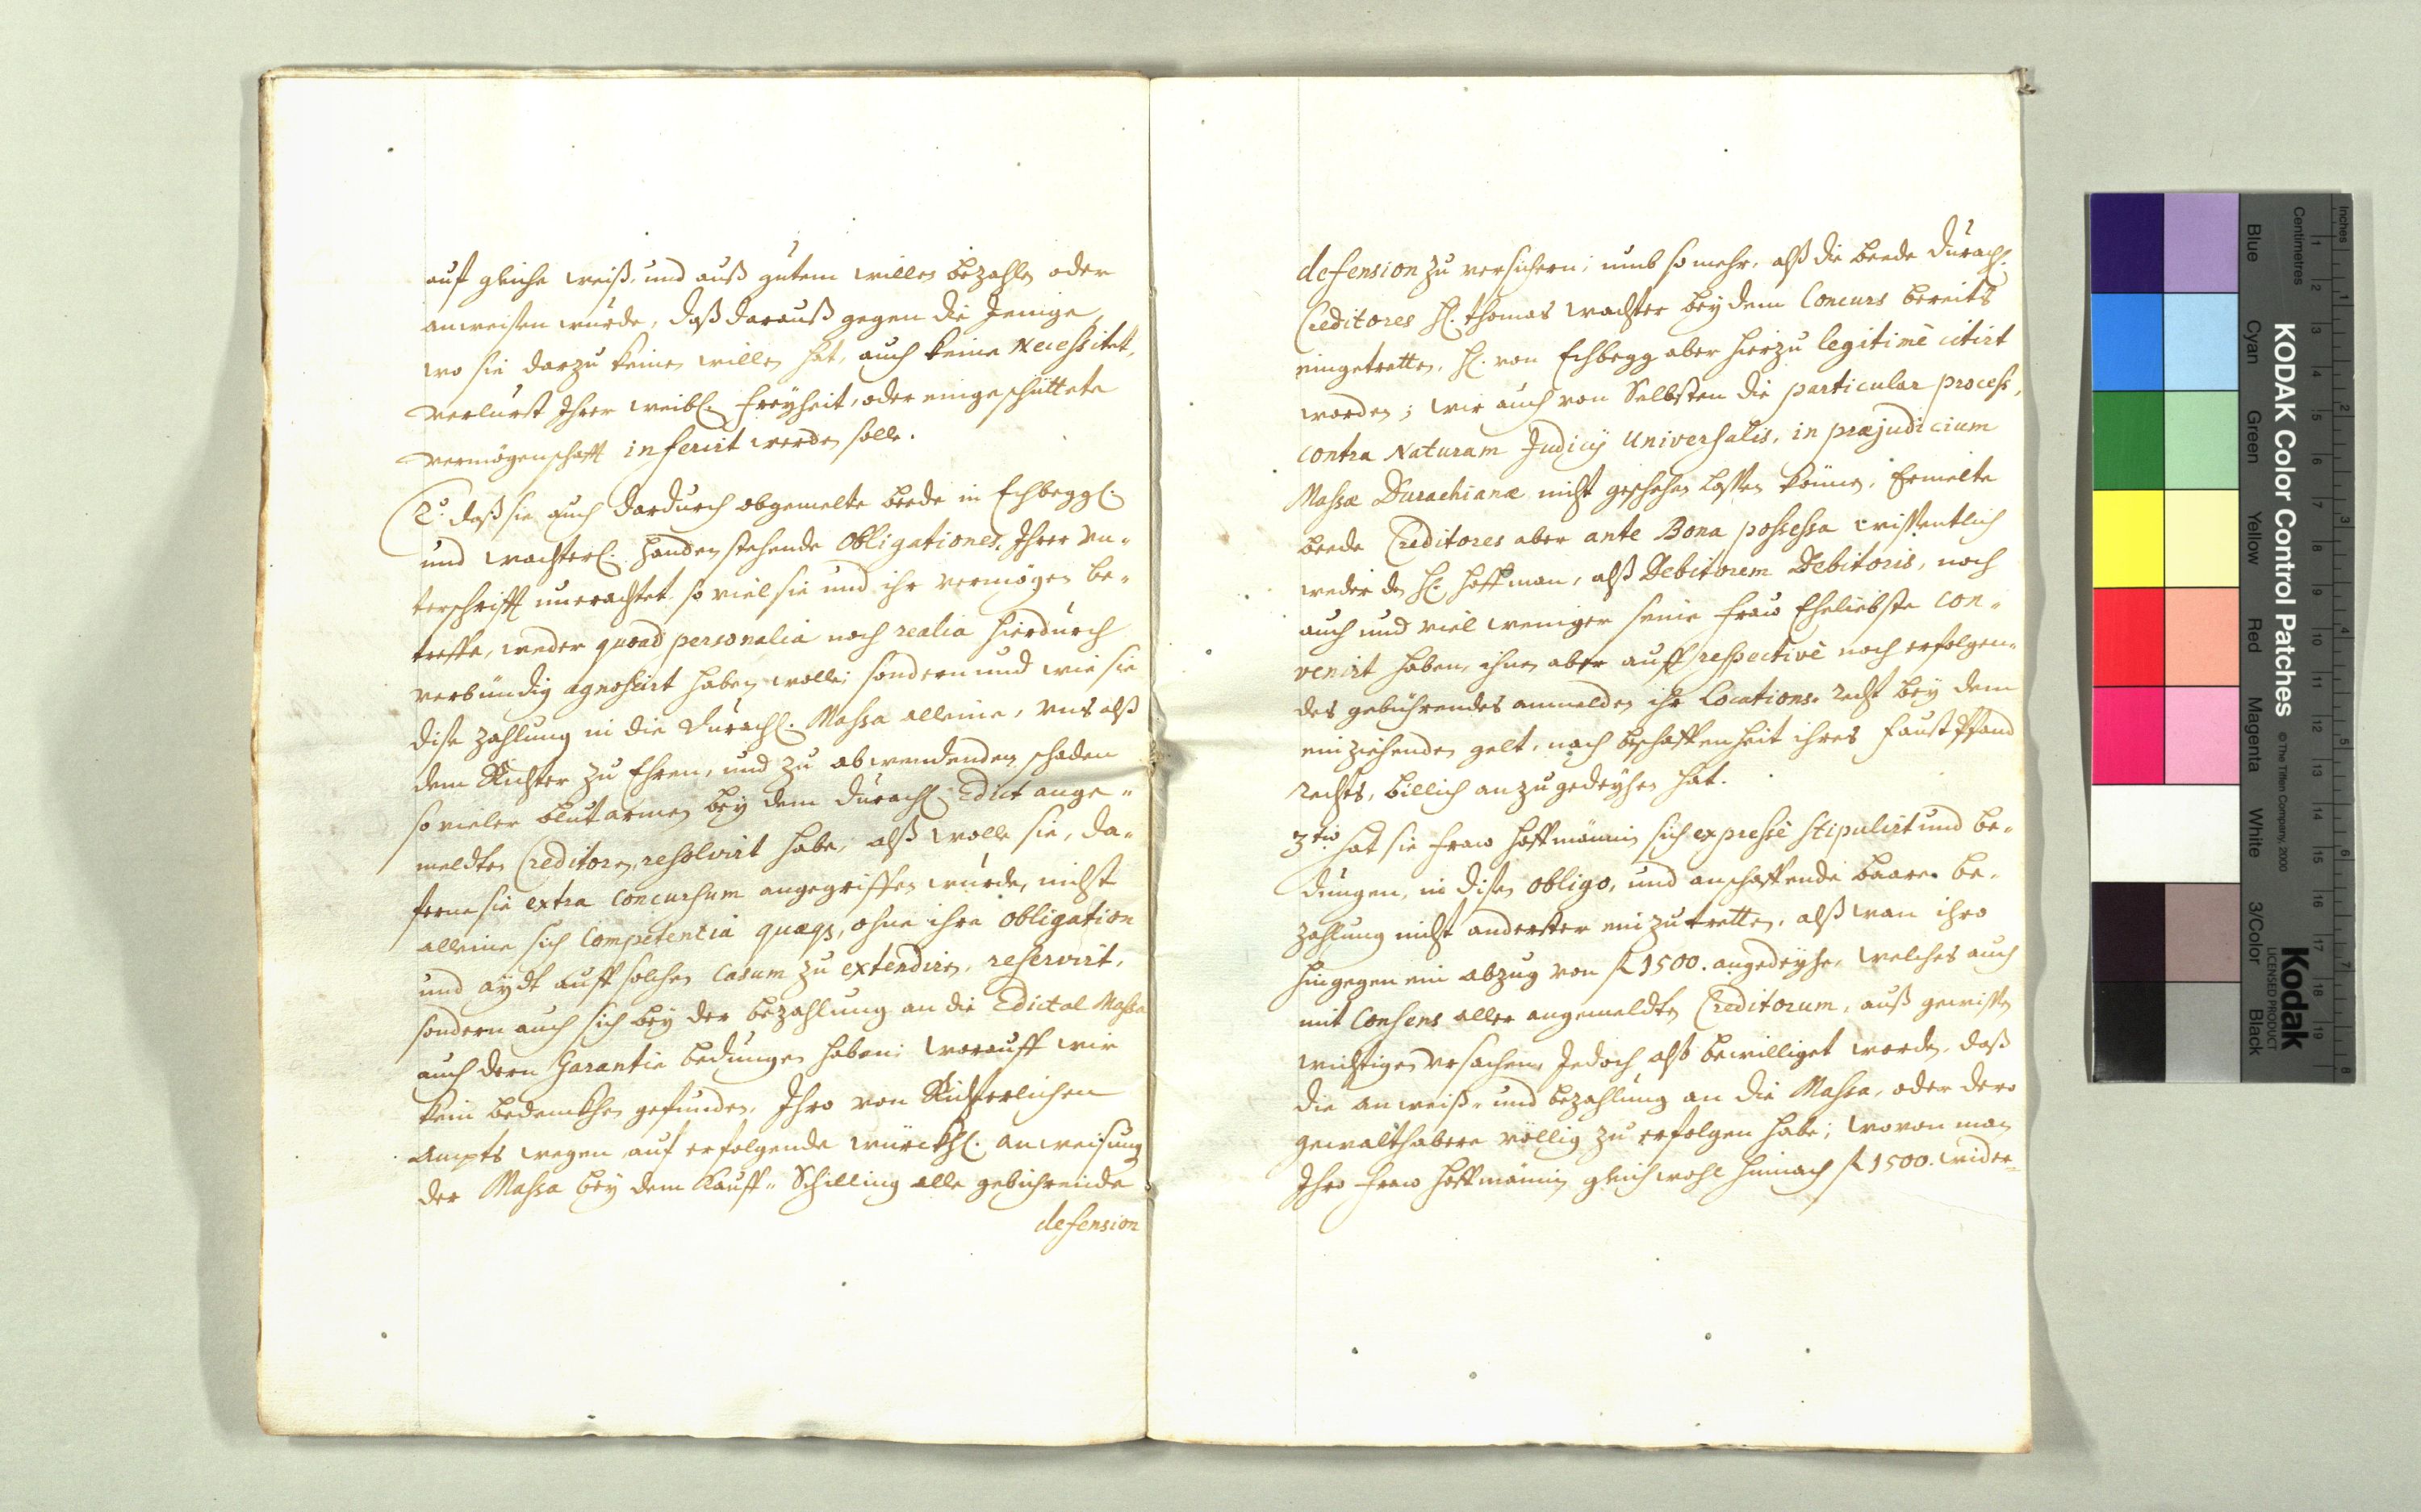 auf gleiche weiß, und auß gutem willen bezahlen oder
anweisen wurde, daß darauß gegen die Jenige,
wo sie darzu keinen willen hat, auch keine Necessitet,
verlurst Ihrer weibl. freyheit, oder eingeschüttete
vermögenschafft inferirt werden solle.
2do. daß sie auch dardurch obgemelte beede in Eschbeggl.
und wachterl. handen stehende Obligationes, Ihrer Un-
terschrifft unerachtet so viel sie und ihr vermögen be-
treffe, weder quoad personalia noch realia hierdurch
verbündig agnoscirt haben wolle, sondern und wie sie
dise zahlung in die Durachl. Massa alleine, uns alß
dem Richter zu Ehren, und zu abwendenden schaden
so vieler blutarmen bey dem Durachl. Edict ange-
meldten Creditoren, resolvirt habe, alß wolle sie, da-
ferne sie extra concursum angegriffen wurde, nicht
alleine sich Competentia quæq;, ohne ihre obligation
und aydt auff solchen Casum zu extendiren, reservirt,
sondern auch sich bey der bezahlung an die Edictal Massa
auch dern Garantie bedungen haben; worauff wir
kein bedenckhen gefunden, Ihro von Richterlichen
Ampts wegen auf erfolgende würckhl. anweisung
der Massa bey dem Kauff-Schilling alle gebührende
defension
defension zu versichern; umb so mehr, alß die beede Durachl.
Creditores H. Thomas wachter bey dem Concurs bereits
eingetretten, H. von Eschbegg aber hierzu legitimè citirt
worden; wir auch von Selbsten die particular process,
contra Naturam Judicij Universalis, in præjudicium
Massæ Durachianæ nicht geschehen lassen können, Ermelte
beede Creditores aber ante Bona possessa wissentlich
weder den H. Hoffman, alß Debitorem Debitoris, noch
auch und viel weniger seine Fraw Eheliebste con-
venirt haben, ihnen aber auff respectivè noch erfolgen-
des gebührendes anmelden ihr Locations-recht bey dem
einziehenden gelt, nach beschaffenheit ihres Faust Pfand
rechts, billich anzugedeyhen hat.
3tio hat sie Fraw Hoffmännin sich expressè stipulirt und be-
dungen, in disen obligo, und anschaffende baare be-
zahlung nicht anderster einzutretten, alß wan ihro
hingegen ein abzug von fl 1500. angedeyhe, welches auch
mit Consens aller angemeldten Creditorum, auß gewissen
wichtigen ursachen Jedoch alß bewilliget worden, daß
die anweiß- und bezahlung an die Massa, oder dero
gewalthabere völlig zu erfolgen habe; wovon man
Ihro Fraw Hoffmännin gleichwohl hinnach fl 1500. wider-